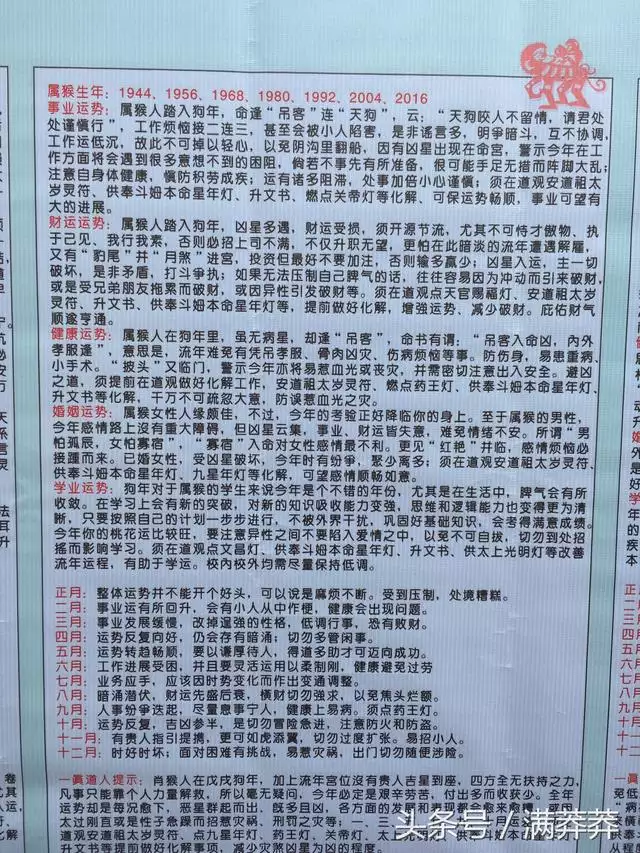 属猴生年：1944、1956、1968、1980、1992、2004、2016
事业运势：属猴人踏入狗年，命逢“吊客”连“天狗”，云：“天狗咬人不留情，请君处
处谨慎行”，工作烦恼接二连三，甚至会被小人陷害，是非谣言多，明争暗斗，互不协调，
工作运低沉，故此不可掉以轻心，以免阴沟里翻船，因有凶星出现在命宫，警示今年在工
作方面将会遇到很多意想不到的困阻，倘若不事先有所准备，很可能手足无措而阵脚大乱；
注意自身体健康，慎防积劳成疾；运有诸多阻滞，处事加倍小心谨慎；须在道观安道祖太
岁灵符、供奉斗姆本命星年灯、升文书、燃点关帝灯等化解、可保运势畅顺，事业可望有
大的进展。
财运运势：属猴人踏入狗年，凶星多遇，财运受损，须开源节流，尤其不可恃才傲物、执
于己见、我行我素，否则必招上司不满，不仅升职无望，更怕在此暗淡的流年遭遇解雇，
又有“豹尾”并“月煞”进宫，投资但最好不要加注，否则输多赢少；凶星入运，主一切
破坏，是非矛盾，打斗争执；如果无法压制自己脾气的话，往往容易因为冲动而引来破财，
或是受兄弟朋友拖累而破财，或因异性引发破财等。须在道观点天官赐福灯、安道祖太岁
灵符、升文书、供奉斗姆本命星年灯等，提前做好化解，增强运势、减少破财。庇佑财气
顺遂亨通。
健康运势：属猴人在狗年里，虽无病星，却逢“吊客”，命书有谓：“吊客入命凶，內外
孝服逢”，意思是，流年难免有凭吊孝服、骨肉凶灾、伤病烦恼等事。防伤身，易患重病、
小手术。“披头”又临门，警示今年亦将易惹血光或丧灾，并需密切注意出入安全。避凶
之道，须提前在道观做好化解工作，安道祖太岁灵符、燃点药王灯、供奉斗姆本命星年灯、
升文书等化解，千万不可疏忽大意，防误惹血光之灾。
婚姻运势：属猴女性人缘颇佳，不过，今年的考验正好降临你的身上。至于属猴的男性，
今年感情路上沒有重大障碍，但凶星云集，事业、财运皆失意，难免情绪不安。所谓“男
怕孤辰，女怕寡宿”，“寡宿”入命对女性感情最不利。更见“红艳”并临，感情烦恼必
接踵而来。已婚女性，受凶星破坏，今年时有纷爭，聚少离多；须在道观安道祖太岁灵符、
供奉斗姆本命星年灯、九星年灯等化解，可望感情顺畅如意。
学业运势：狗年对于属猴的学生来说今年是个不错的年份，尤其是在生活中，脾气会有所
收敛。在学习上会有新的突破，对新的知识吸收能力变强，思维和逻辑能力也变得更为清
晰，只要按照自己的计划一步步进行，不被外界干扰，巩固好基础知识，会考得满意成绩。
今年你的桃花运比较旺，要注意异性之间不要陷入爱情之中，以免不可自拔，切勿到处招
摇而影响学习。须在道观点文昌灯、供奉斗姆本命星年灯、升文书、供太上光明灯等改善
流年运程，有助于学运。校內校外均需尽量保持低调。
正月：整体运势并不能开个好头，可以说是麻烦不断。受到压制，处境糟糕。
二月：事业运有所回升，会有小人从中作梗，健康会出现问题。
三月：事业发展缓慢，改掉逞强的性格，低调行事，恐有败财。
四月：运势反复向好，仍会存有暗涌；切勿多管闲事。
五月：运势转趋畅顺，要以谦厚待人，得道多助才可迈向成功。
六月：工作进展受困，并且要灵活运用以柔制刚，健康避免过劳
七月：业务应手，应该因时势变化而作出变通调整。
八月：暗涌潜伏，财运先盛后衰，横财切勿强求，以免焦头烂额。
九月：人事纷争迭起，尽量息事宁人，健康上易病。须点药王灯。
十月：运势反复，吉凶参半，是切勿冒险急进，注意防火和防盗。
十一月：有贵人指引提携，更可如虎添翼，切勿过度扩张。易招小人。
十二月：时好时坏；面对困难有挑战，易惹灾祸，出门切勿随便涉险。
一眞道人提示：肖猴人在戊戌狗年，加上流年宫位沒有贵人吉星到座，四方全无扶持之力，
凡事只能靠个人力量解救，所以毫无疑问，今年必定是艰辛劳苦，付出多而收获少。全年
运势却是每况愈下，恶星群起而出，既多且凶，各方面的发展和表现都会愈来愈糟，或因
太过刚直或是性子急躁而招惹灾祸、刑罚之灾等；一、三、
须在道观安道祖太岁灵符、点九星年灯、药王灯、关帝灯、太上光明灯、供奉斗姆本命星年灯、
升文书等提前做好化解，减少灾煞凶星为凶的程度。
头条号 / 满莽莽